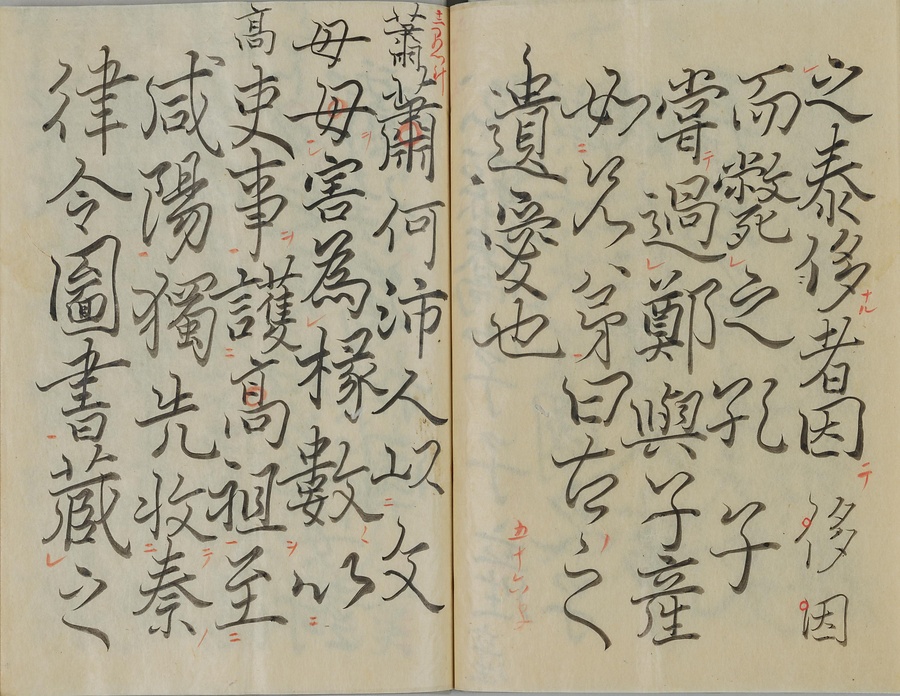 之泰侈者因 侈 因
而斃死之孔子
嘗過鄭與子産
如兄弟曰古之
遺愛也
蕭 蕭何沛人以文
毋 毋害為椽數以
高 吏事護高祖至
咸陽獨先收秦
律令圖書藏之